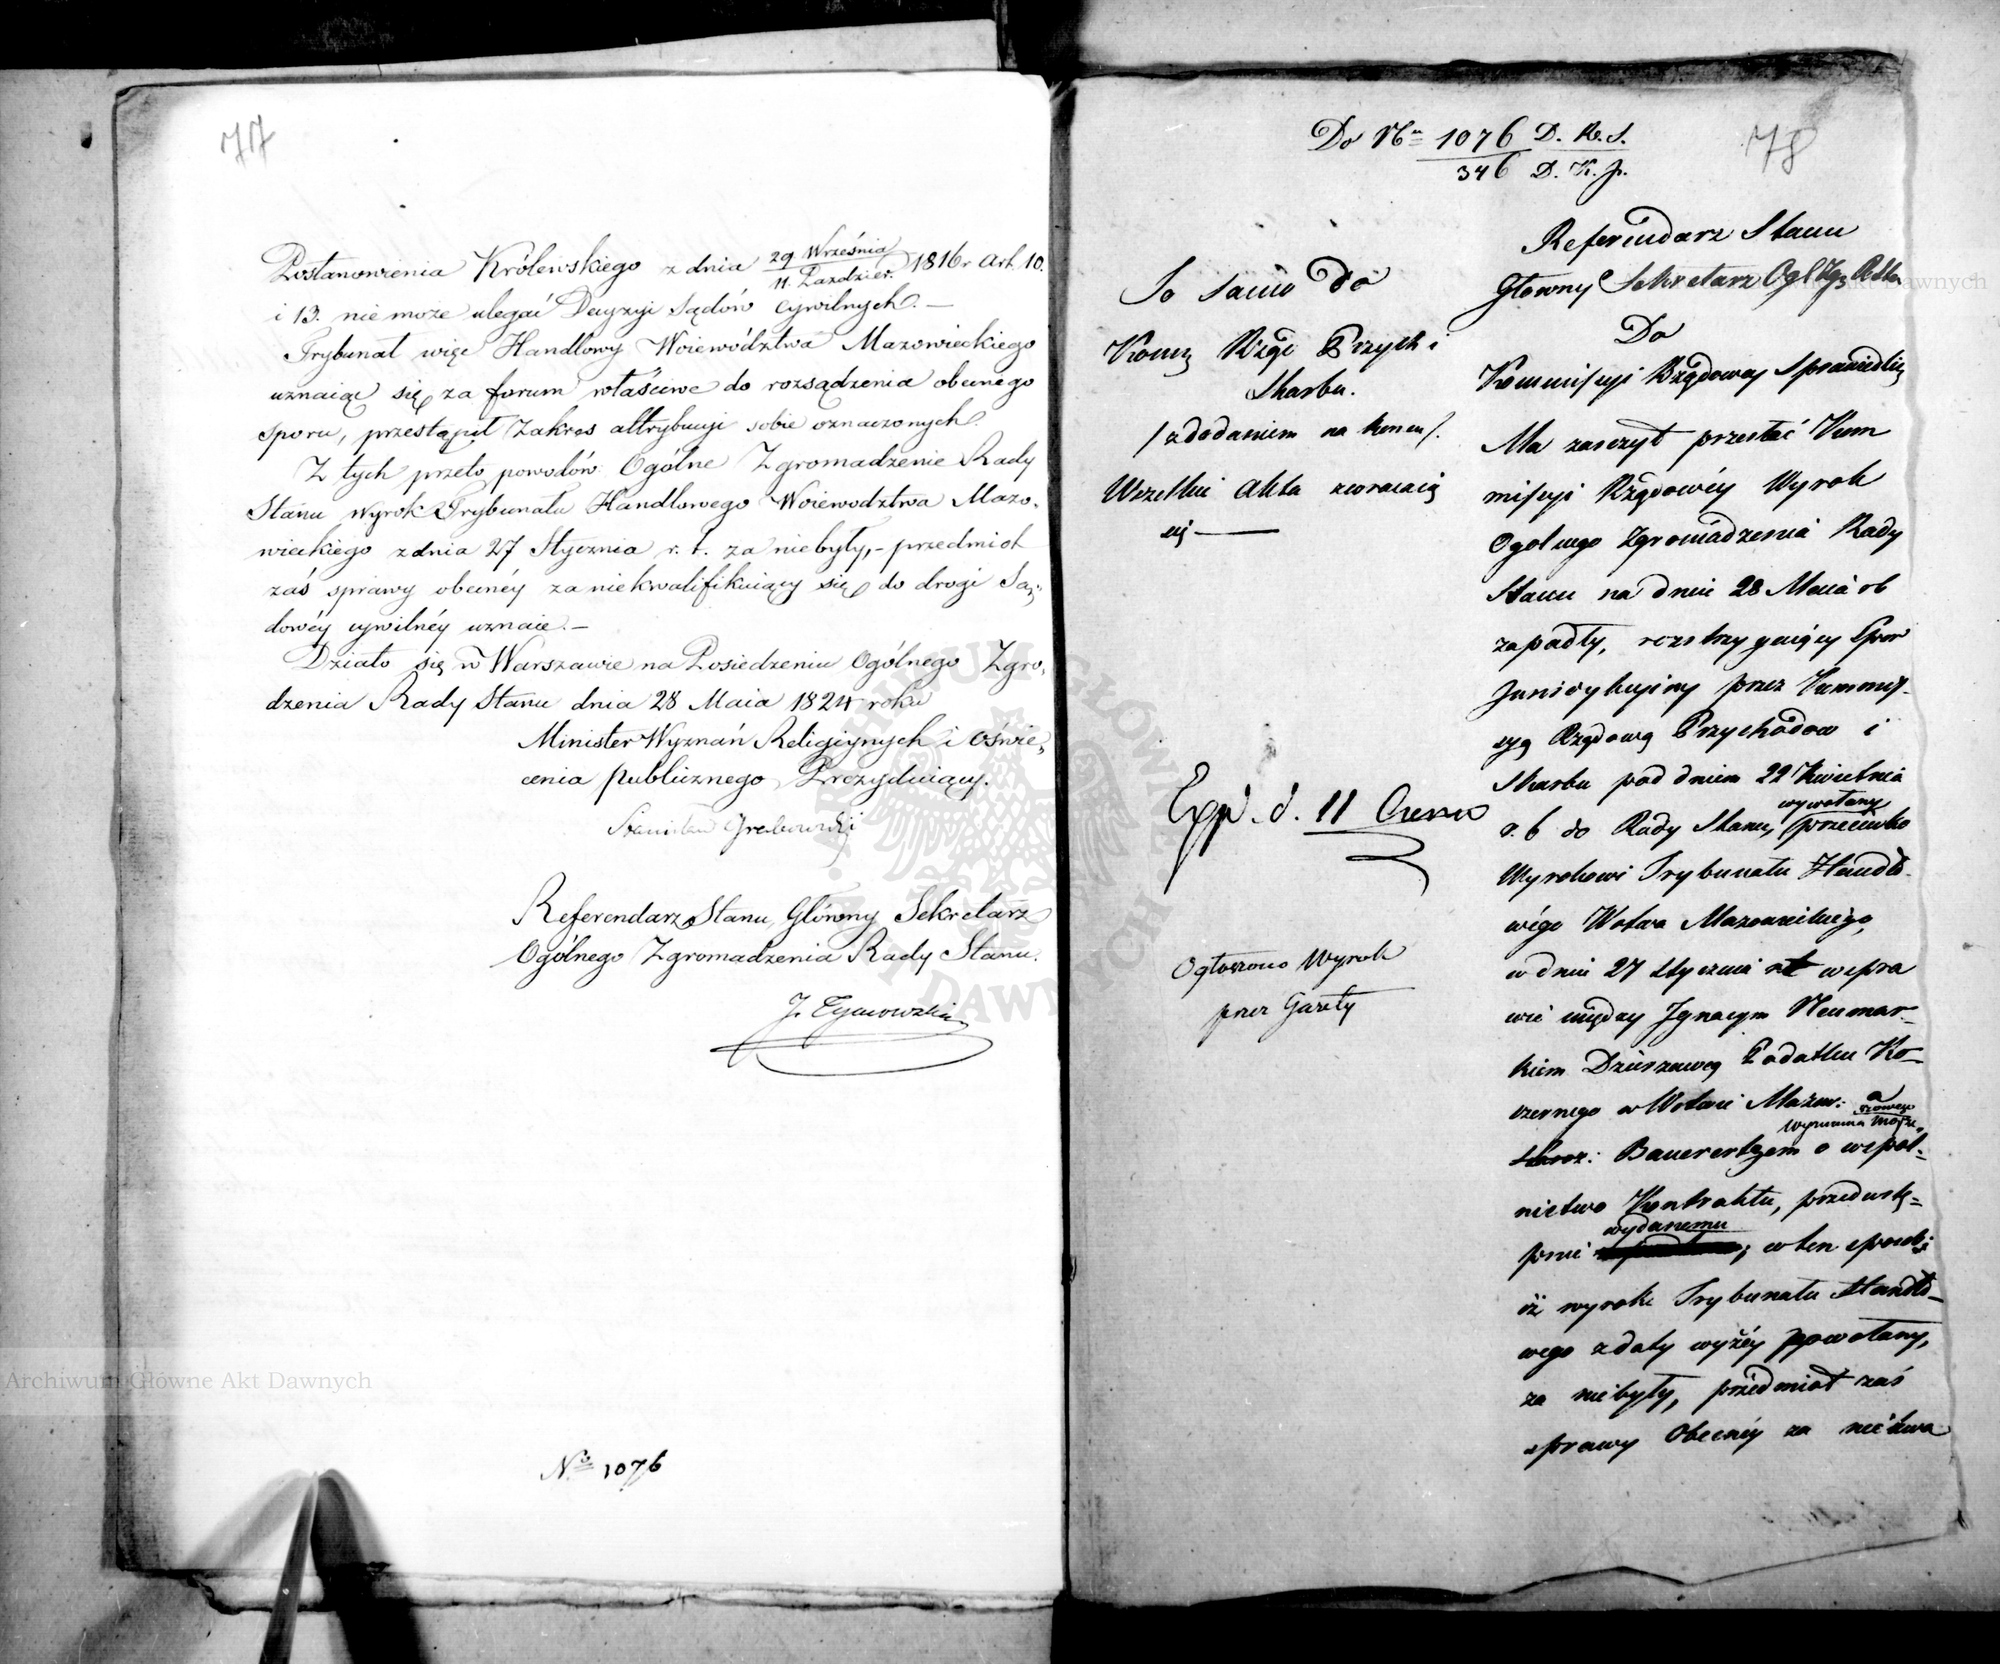 77
Postanowienia Królewskiego z dnia 29 Września / 11. Paździer. 1816 r Art. 10.
i 13. nie może ulegać Decyzyi Sądów Cywilnych. —
Trybunał więc Handlowy Woiewództwa Mazowieckiego
uznaiąc się za forum właściwe do rozsądzenia obecnego
Sporu, przestąpił Zakres attrybucyi sobie oznaczonych.
Z tych przeto powodów Ogólne Zgromadzenie Rady
Stanu wyrok Trybunału Handlowego Woiewodztwa Mazo-
wieckiego z dnia 27 Stycznia r. b. za niebyły, – przedmiot
zaś sprawy obecnéy za niekwalifikuiący się do drogi Są-
dowéy cywilnéy uznaie. —
Działo się w Warszawie na Posiedzeniu Ogólnego Zgro-
dzenia Rady Stanu dnia 28 Maia 1824 roku
Minister Wyznań Religiynych i Oświe-
cenia Publicznego Prezyduiący.
Stanisław Grabowski
Referendarz Stanu, Główny Sekretarz
Ogólnego Zgromadzenia Rady Stanu.
J. Tymowski
No 1076
78
Do Nru 1076 D. R. S.
346 D. K. J.
To samo do
Komis Rząd Przych i
Skarbu.
/ z dodaniem na koncu /.
Wszelkie Akta zwracaią
się —
Exp. d. 11 Czerw
Ogłoszono Wyrok
przez Gazety
Referendarz Stanu
Głowny Sekretarz Ogl Zgr Rdy
Do
Kommissyi Rządowey Sprawiedliw
Ma zaszczyt przesłać Kom
missyi Rządowéy Wyrok
Ogolnego Zgromadzenia Rady
Stanu na dniu 28 Maia rb
zapadły, rozstrzygaiący Spor
Jurisdykcyiny przez Kommis-
syą Rządową Przychodow i
Skarbu pod dniem 22 Kwietnia
wywołany
r. b do Rady Stanu, przeciwko
Wyrokowi Trybunału Handlo-
wego Wotwa Mazowieckiego,
w dniu 27 Stycznia rb w spra
wie między Ignacym Neumar-
kiem Dzierżawcą Podatku Ko-
szernego w Wotwie Mazow: a
Bauerertzem o wspol-
nictwo Kontraktu, przedwstę-
wydanemu
pnie ; w ten sposob:
iż wyrok Trybunału Handlo-
wego z daty wyżéy powołany,
za niebyły, przedmiot zaś
sprawy Obecnéy za niekwa
Archiwum Główne Akt Dawnych
ARCHIWUM GŁÓWNE AKT DAWNYCH